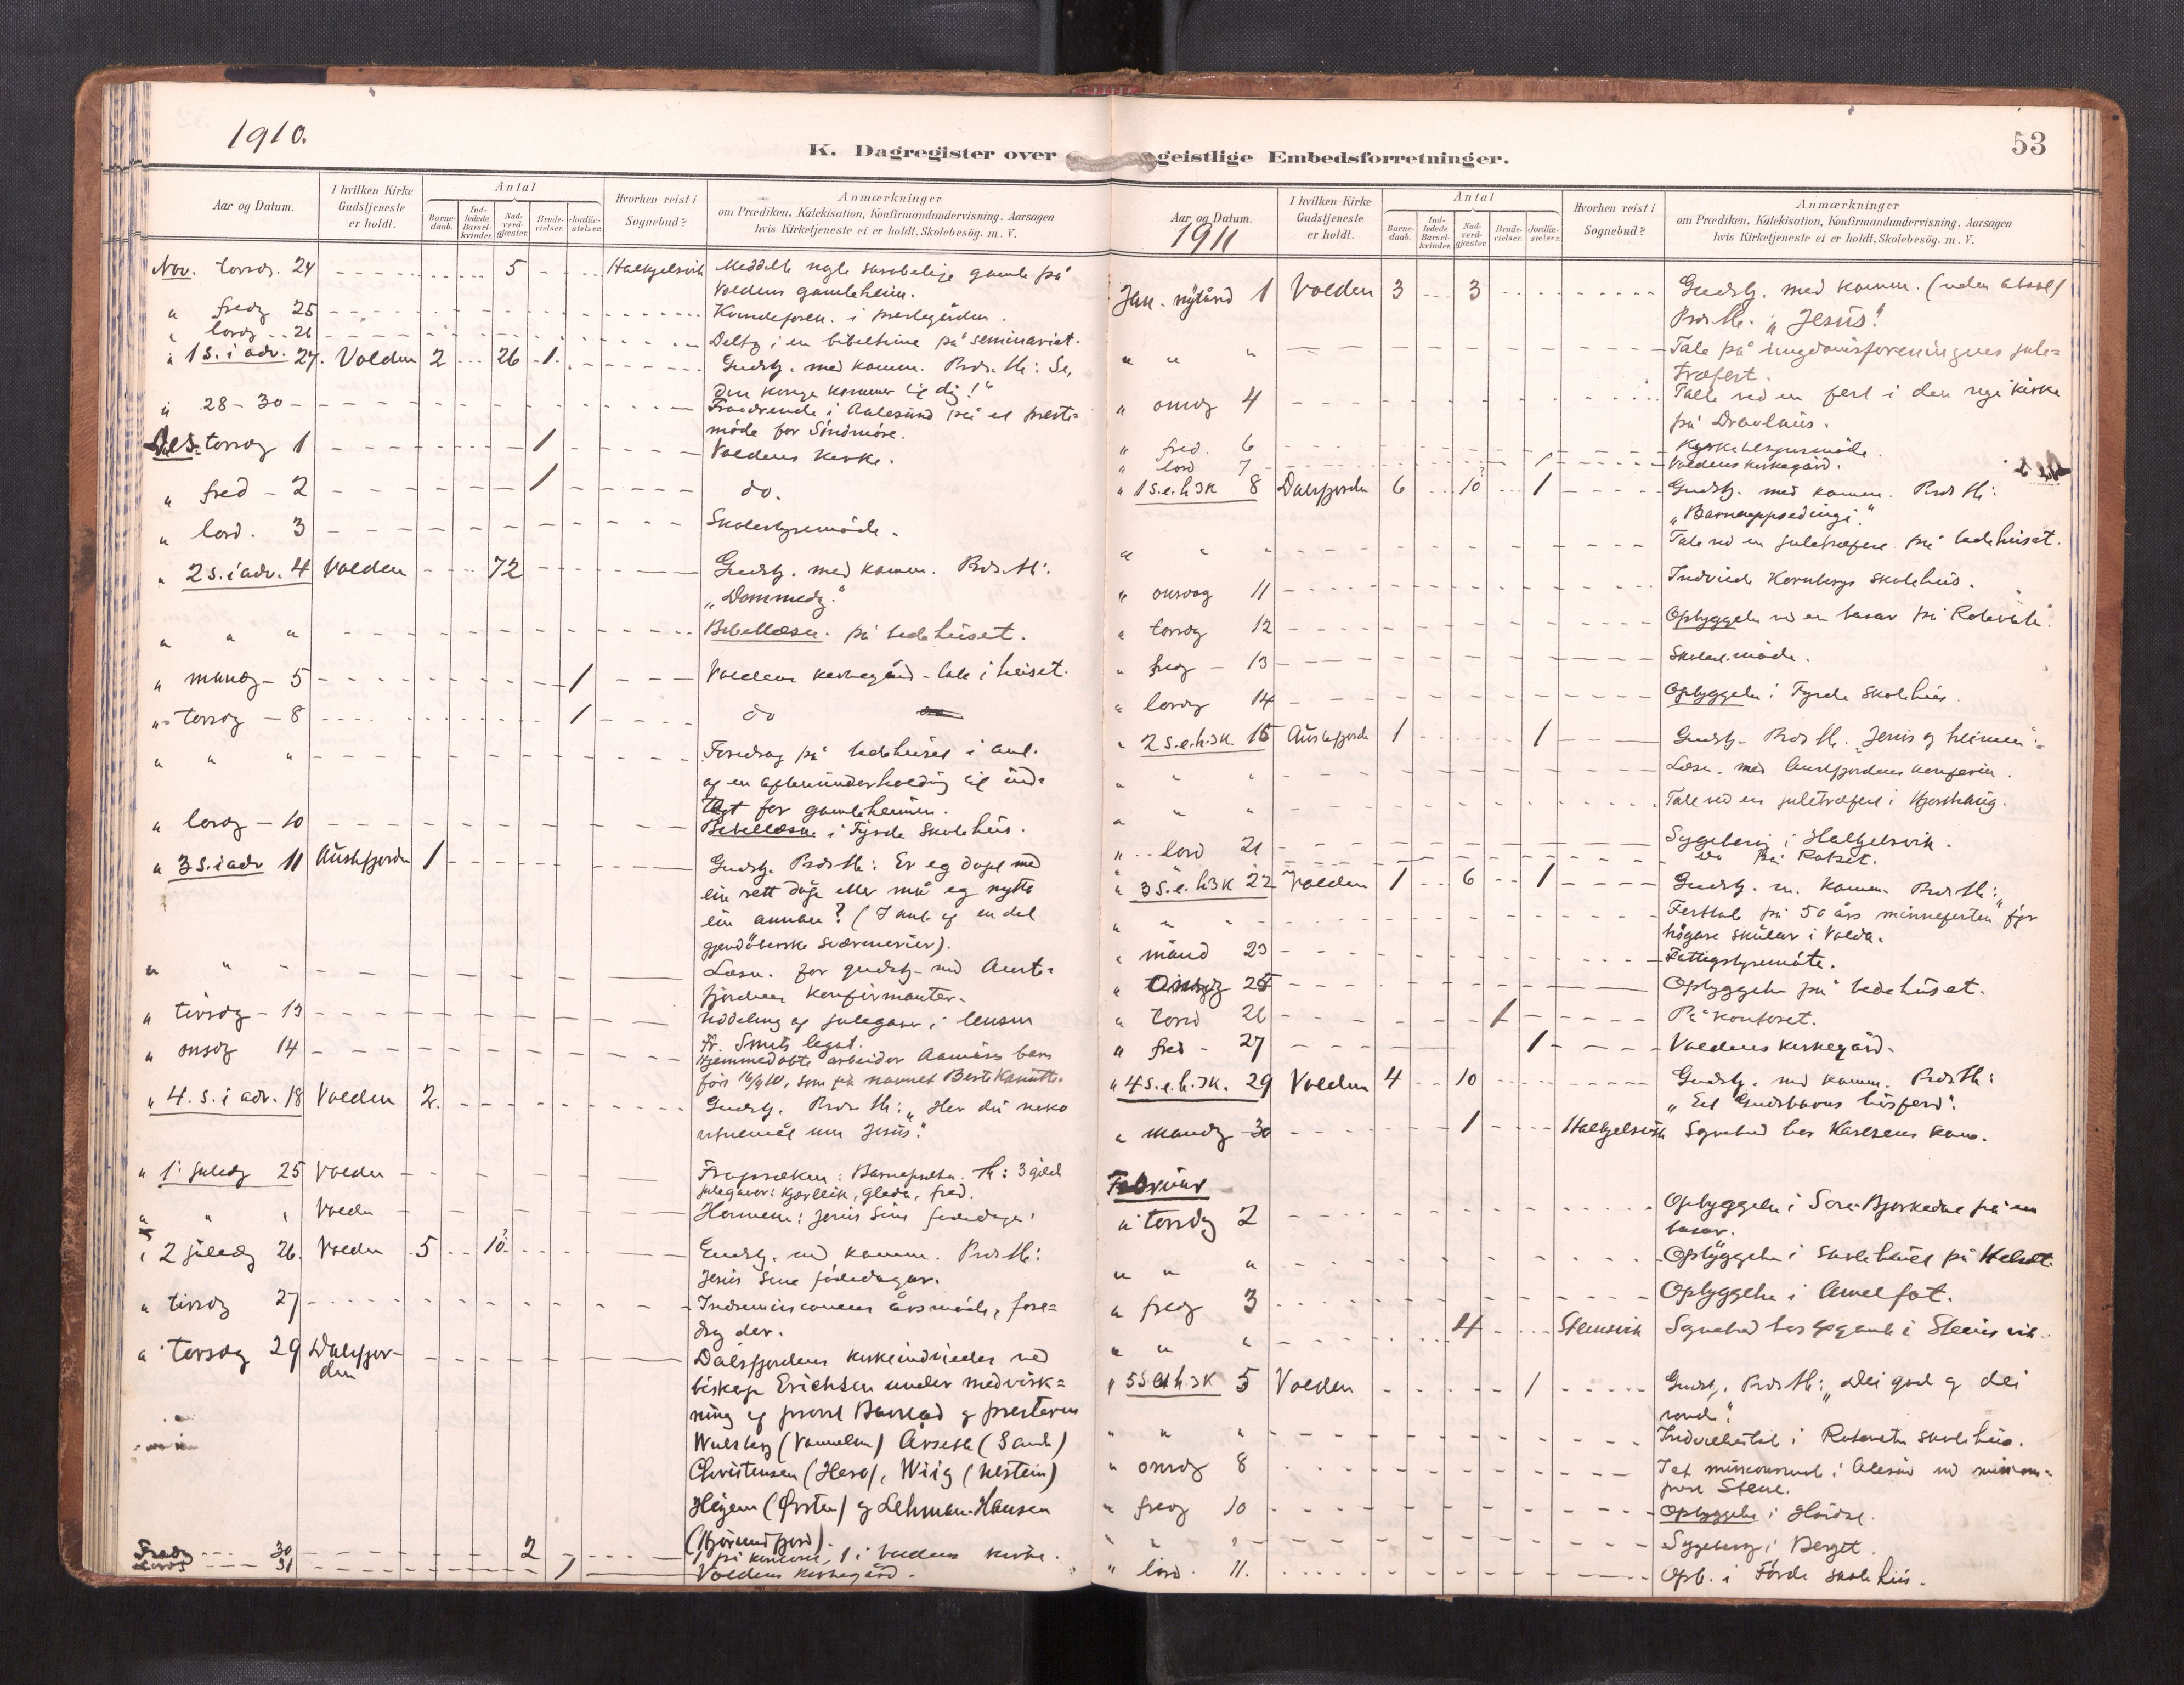 1910.
K. Dagregister over
Aar og Datum.
I hvilken Kirke
Gudstjeneste
er holdt.
Antal
Barne-
daab.
Ind-
ledede
Barsel-
kvinder.
Nad-
verd-
gjæster.
Brude-
vielser.
Jordfæ-
stelser.
Hvorhen reist i
Sognebud?
Anmærkninger
om Prædiken, Katekisation, Konfirmandundervisning, Aarsagen
hvis Kirketjeneste ei er holdt, Skolebesøg. m. V.
Nov. torsdg. 24 5 Halkjelsvik Meddelte nogle på
Voldens gamleheim.
" fredg 25 i prestegården.
" lordg 26 Deltog i en bibeltime på seminariet.
" 1 s. i adv. 27. Volden 2 26 1. Gudstj. med komm. Prds. th: Se,
din konge kommer til dig!"
" 28-30 Fraværende i Aalesund på et preste=
møde for Söndmöre.
Des. torsdg 1 1 Voldens kirke.
" fred - 2 1 do.
" lord. 3 Skolestyremöde.
" 2 s. i adv. 4 Volden 72 Gudstj. med komm. Prds. th:
"Dommedg."
" " " Bibellæsn. på bedehuset.
" mandg - 5 1 Voldens kirkegård - tale i huset.
" torsdg - 8 1 do
" " " Foredrag på bedehuset i anl.
af en aftenunderholdng til ind=
tægt for gamleheimen.
" lordg - 10 Bibellæsn i Fyrde skolehus.
" 3 s. i adv 11 Austefjorden 1 Gudstj. Prds. th: Er eg döypt med
ein rett dåp eller må eg nytte
ein annan? (I anl. af en del
gjendöberske sværmerier).
" " " Læsn. for gudstj. med Auste-
fjordens konfirmanter.
" tirsdg - 13 Uddeling af julegaver i lensm
Fr. Smits legat.
" onsdg 14 Hjemmedöbte arbeider Aamås's barn
" 4. s. i adv. 18 Volden 2. Gudstj. Prds. th: "Har du noko
usnemål um Jesus".
" 1 juledg 25 Volden Fropræken: Barnepreken. Th: 3 gilde
julegaver: Kjærleik, glede, fred.
" " " Volden Höimesse: Jesus sine födedagar.
" 2 juledg 26. Volden 5 10? Gudstj. med komm. Prds. th:
Jesus sine födedagar.
" tirsdg 27 Indremissionens årsmöde, fore=
drg der.
" torsdg 29 Dalsfjor-
den
Dalsfjordens kirke indviedes ved
biskop Erichsen under medvirk=
ning af prost Barstad og presterne
Wulsberg (Vannelven) Aarseth (Sande)
Christensen (Herø), Wiig (Ulstein)
Heigem (Ørsten) og Lehman-Hansen
(Hjörundfjord).
Fredg 30 2 1 på kontoret, 1 i Voldens kirke.
Lordg 31 1 Voldens kirkegård.
53
geistlige Embedsforretninger.
Aar og Datum.
1911
I hvilken Kirke
Gudstjeneste
er holdt.
Antal
Barne-
daab.
Ind-
ledede
Barsel-
kvinder.
Nad-
verd-
gjæster.
Brude-
vielser.
Jordfæ-
stelser.
Hvorhen reist i
Sognebud?
Anmærkninger
om Prædiken, Katekisation, Konfirmandundervisning, Aarsagen
hvis Kirketjeneste ei er holdt, Skolebesøg. m. V.
Jan. nytård 1 Volden 3 3 Gudstj. med komm. (uden absol)
Prds. th. "Jesus".
" " " Tale på ungdomsforeningens jule=
træfest.
" onsdg 4 Tale ved en fest i den nye kirke
på Dravlaus.
" fred. 6 Kyrketilsynsmöde.
" lord 7 1 Voldens kirkegård.
" 1 s. e. h3k 8 Dalsfjorden 6 10? 1 Gudstj. med komm. Prds. th:
"Barneuppsedingi."
" " " Tale ved en juletræfest på bedehuset.
" onsdag 11 Indviede Kornbergs skolehus.
" torsdg 12 Opbyggelse ved en basar på Rotevatn.
" fredg - 13 Skolest.möde.
" lordg 14 Opbyggelse i Fyrde skolehus.
" 2 s. e. h. 3k. 15 Austefjorden 1 1 Gudstj. Prds. th. "Jesus og heimen".
" " " Læsn. med Austfjordens konfirm.
" " " Tale ved en juletræfest i
" lord 21 Sygebesøg i Halkjelsvik.
" " do på Rotset.
" 3 s. e. h3k 22 Volden 1 6 1 Gudstj. m. komm. Prds. th:
" " " Festtale på 50 års minnefesten fyr
högare skular i Volda.
" månd 23 Fattigstyremöte.
" Onsdg 25 Opbyggelse på bedehuset.
" torsd 26 1 På kontoret.
" fred - 27 1 Voldens kirkegård.
" 4 s. e. h. 3k. 29 Volden 4 10 Gudstj. med komm. Prds. th:
"Eit Gudsbarns
" mandg 30 1 Halkjelsvik Sognebud hos Karlsens kone.
Februar
" torsdg 2 Opbyggelse i Søre-Bjørkedal på en
basar.
" " " Opbyggelse i skolehuset på
" fredg 3 Opbyggelse i
" " " 4 Steinsvik Sognebud hos 4 gamle i Steinsvik.
" 5 s e h. 3k 5 Volden 1 Gudstj. Prds. th: "Dei gode og dei
vonde".
" " " Indvielsestale i Rotevatn skolehus.
" onsdg 8 I et missionsmöde i Ålesund med misions=
prest Stene.
" fredg 10 Opbyggelse i
" " " Sygebesøg i Berget.
" lord. 11. Opb. i Förde skolehus.